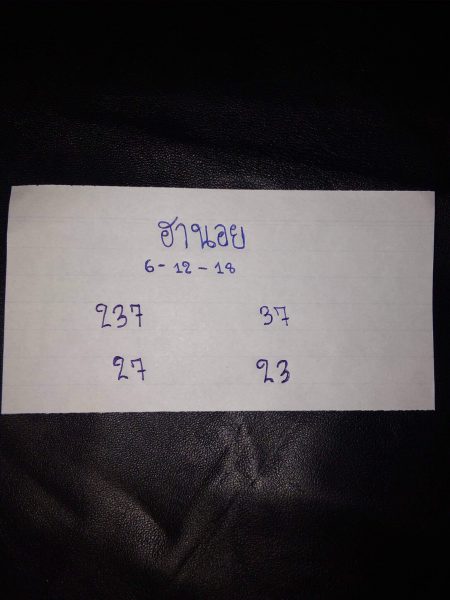 ฮานอย
6-12-18
237 37
27 23